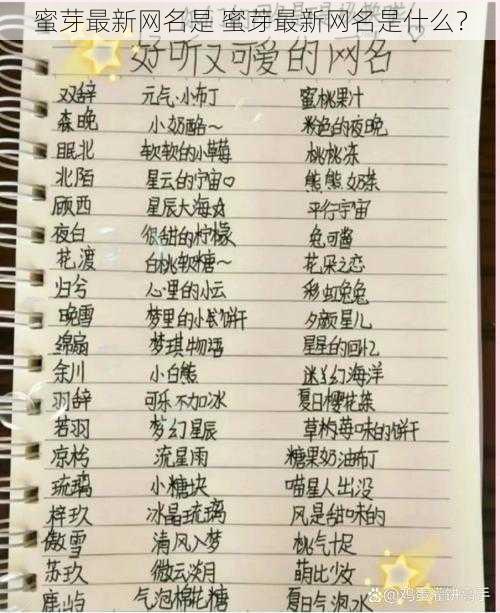 蜜芽最新网名是 蜜芽最新网名是什么？
好听又可爱的网名
双辞 元气·小布丁 蜜桃果汁
森晚 小奶酪～ 粉色的夜晚
眠北 软软的小草莓 桃桃冻
北陌 星云的宇宙♡ 熊熊奶茶
顾西 星辰大海☆ 平行宇宙
夜白 很甜的柠檬 兔可酱
花渡 白桃软糖～ 花朵之恋
归兮 心里的小云 彩虹兔兔
晚雪 梦里的小饼干 夕颜星儿
绵扇 梦琪物语 星星的回忆
余川 小白熊 迷幻海洋
羽辞 可乐不加冰 夏日樱花茶
若羽 梦幻星辰 草莓味的饼干
凉柃 流星雨 糖果奶油布丁
琉璃 小糖块 喵星人出没
梓玖 冰晶琉璃 风是甜味的
傲雪 清风入梦 桃气十足
苏玖 微云淡月 萌比少女
鹿屿 气泡棉花糖 夏日气泡水